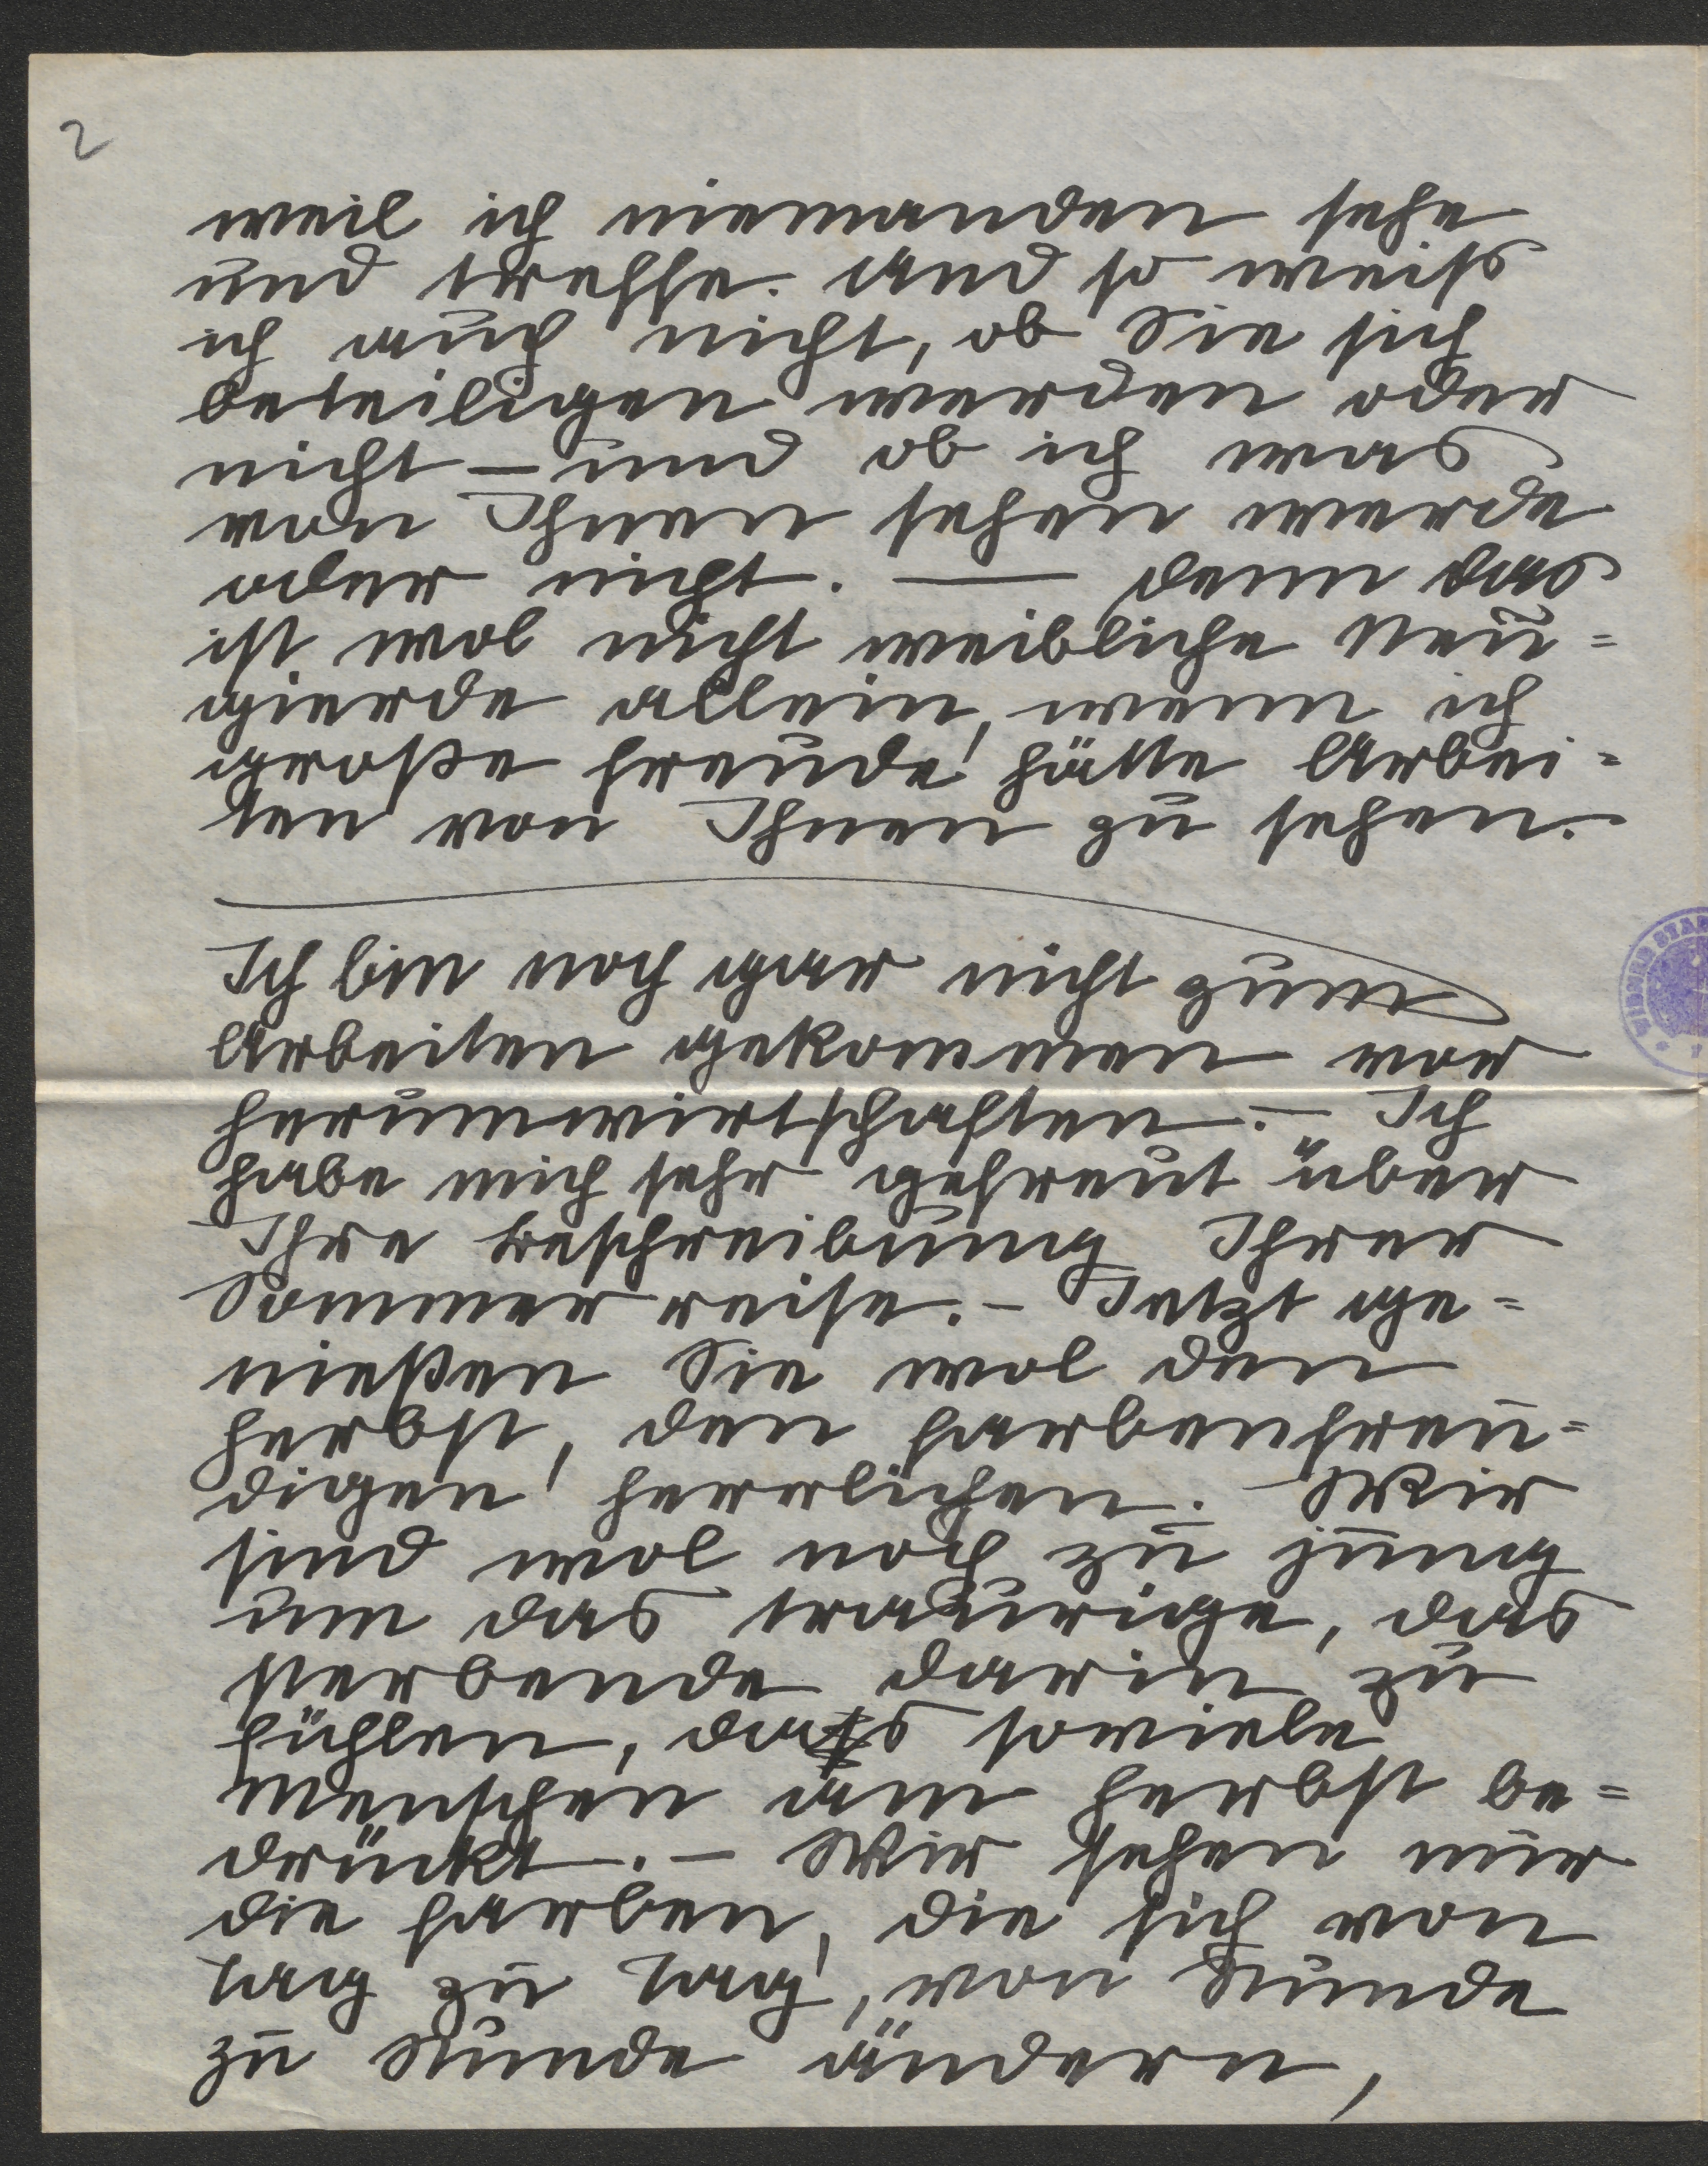 2
weil ich niemanden sehe
und treffe. Und so weiss
ich auch nicht, ob Sie sich
beteiligen werden oder
nicht – und ob ich was
von Ihnen sehen werde
oder nicht. — denn das
ist wol nicht weibliche Neu=
gierde allein, wenn ich
große Freude hätte Arbei=
ten von Ihnen zu sehen.
Ich bin noch gar nicht zum
Arbeiten gekommen vor
herumwirtschaften. – Ich
habe mich sehr gefreut über
Ihre Beschreibung Ihrer
Sommerreise. – Jetzt ge=
nießen Sie wol den
Herbst, den farbenfreu=
digen, herrlichen. Wir
sind wol noch zu jung
um das traurige, das
sterbende darin zu
fühlen, das soviele
Menschen am Herbst be=
drückt. – Wir sehen nur
die Farben, die sich von
Tag zu Tag, von Stunde
zu Stunde ändern,
WIENER STA